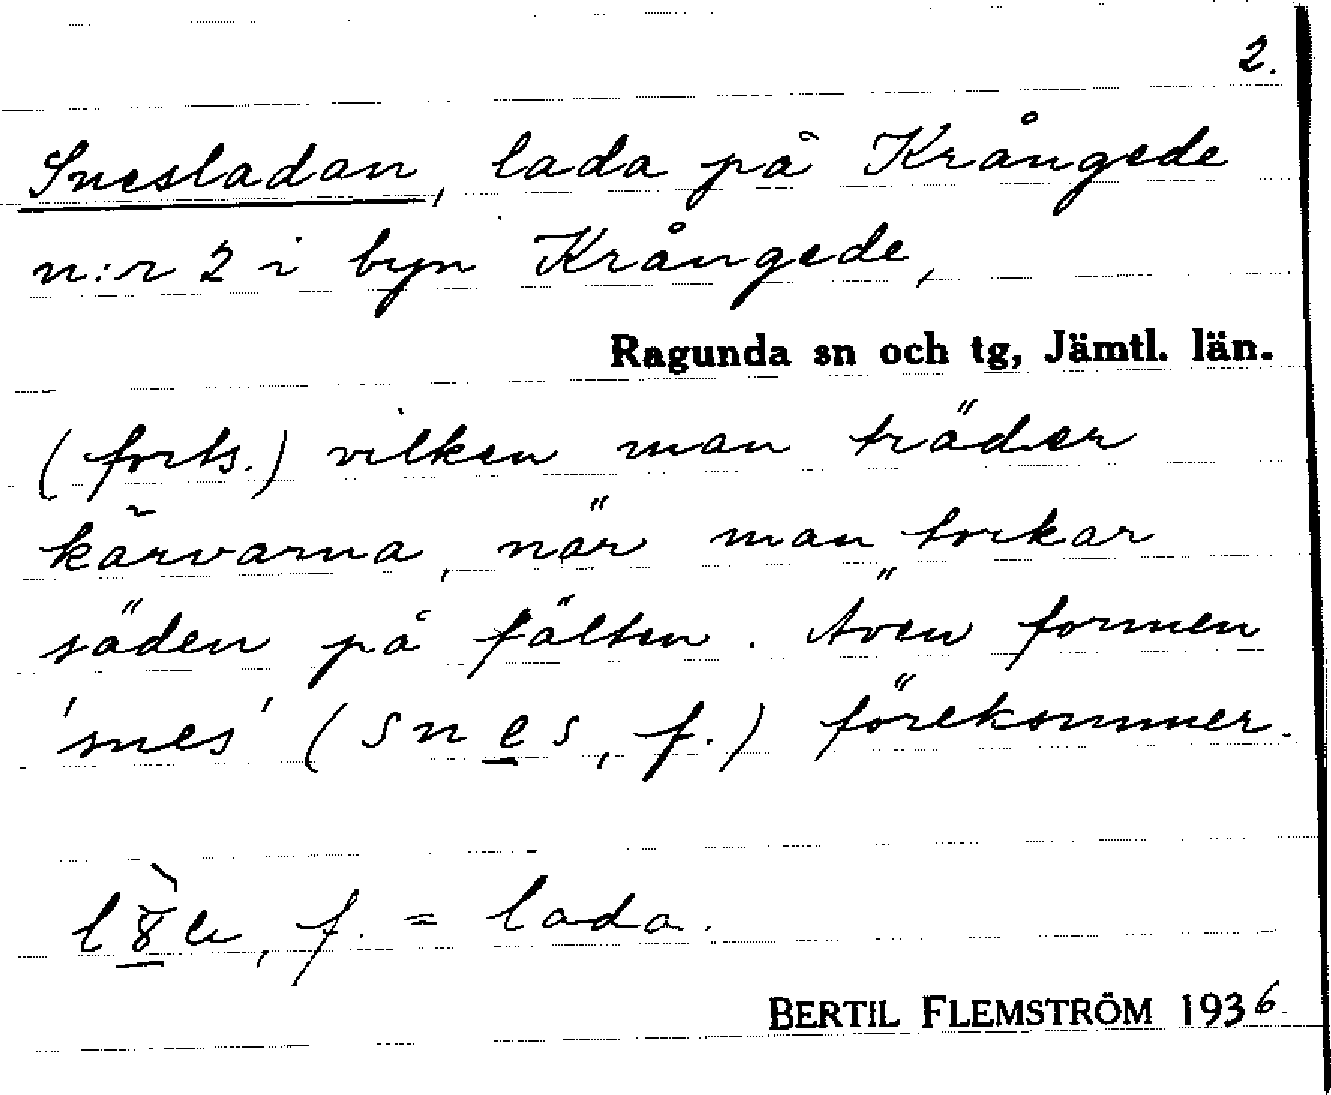 2.
Snesladan, lada på Krångede
n:r 2 i byn Krångede,
Ragunda sn och tg, Jämtl. län.
(forts.) vilken man träder
kärvarna, när man torkar
säden på fälten. Även formen
'snes' (snes, f.) förekommer.
f. = lada.
BERTIL FLEMSTRÖM 1936